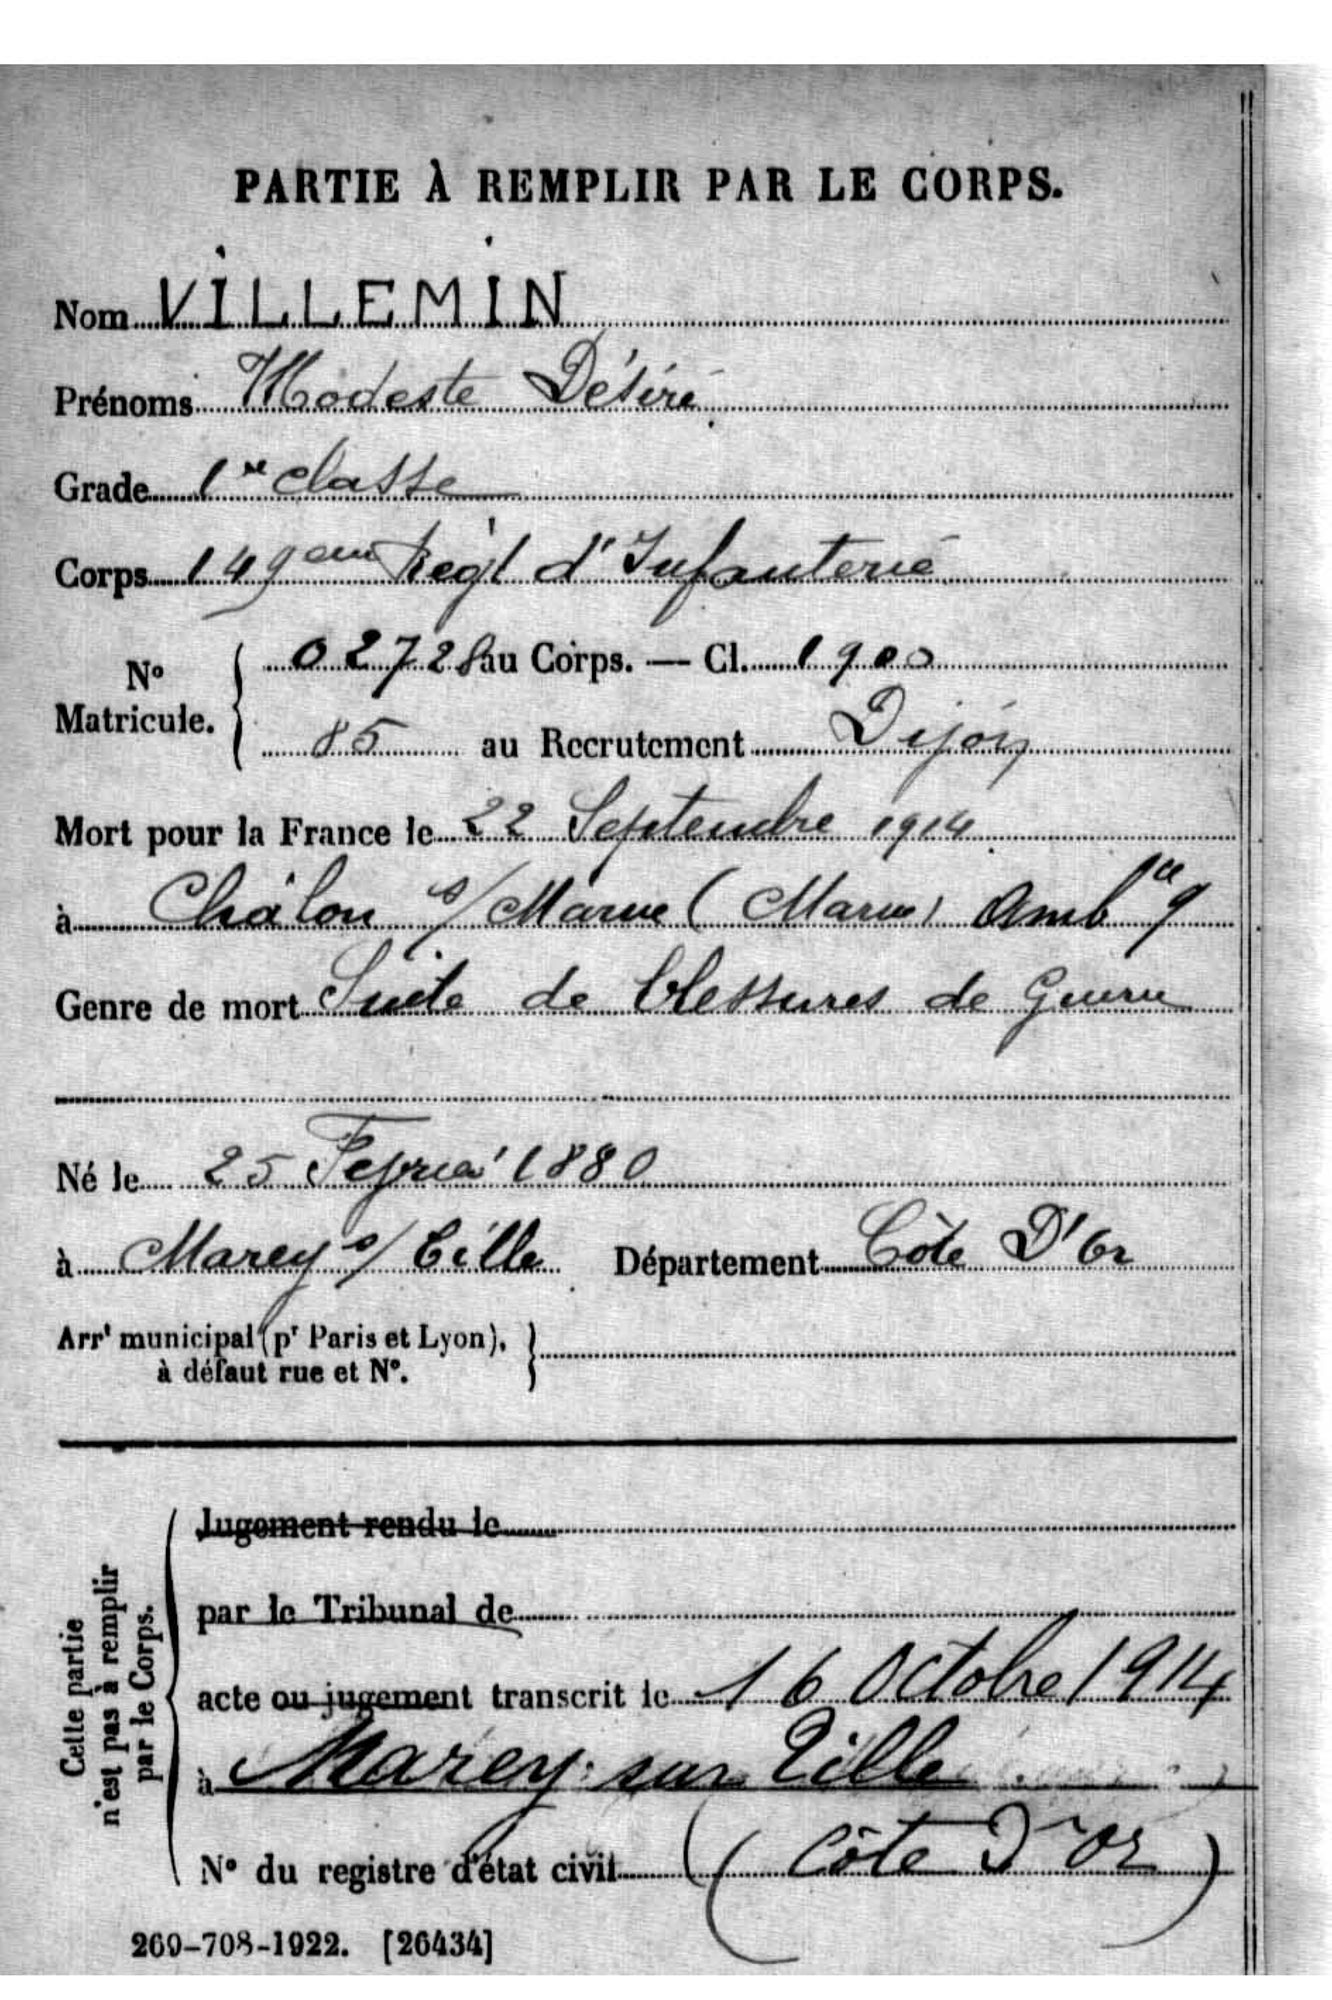 PARTIE À REMPLIR PAR LE CORPS.
Nom VILLEMIN
Prénoms Modeste Désiré
Grade 1re classe
Corps 149eme Regt d'Infanterie
No Matricule. { 02728 au Corps. — Cl. 1900
85 au Recrutement Dijon
Mort pour la France le 22 Septembre 1914
à Châlon s/ Marne (Marne) Ambce 9
Genre de mort Suite de blessures de Guerre
Né le 25 Février 1880
à Marey s/ Tille Département Côte D'Or
Arrt municipal (pr Paris et Lyon), à défaut rue et No. }
Cette partie n'est pas à remplir par le Corps.
Jugement rendu le
par le Tribunal de
acte ou jugement transcrit le 16 Octobre 1914
à Marey sur Tille
No du registre d'état civil (Côte D'Or)
269-708-1922. [26434]